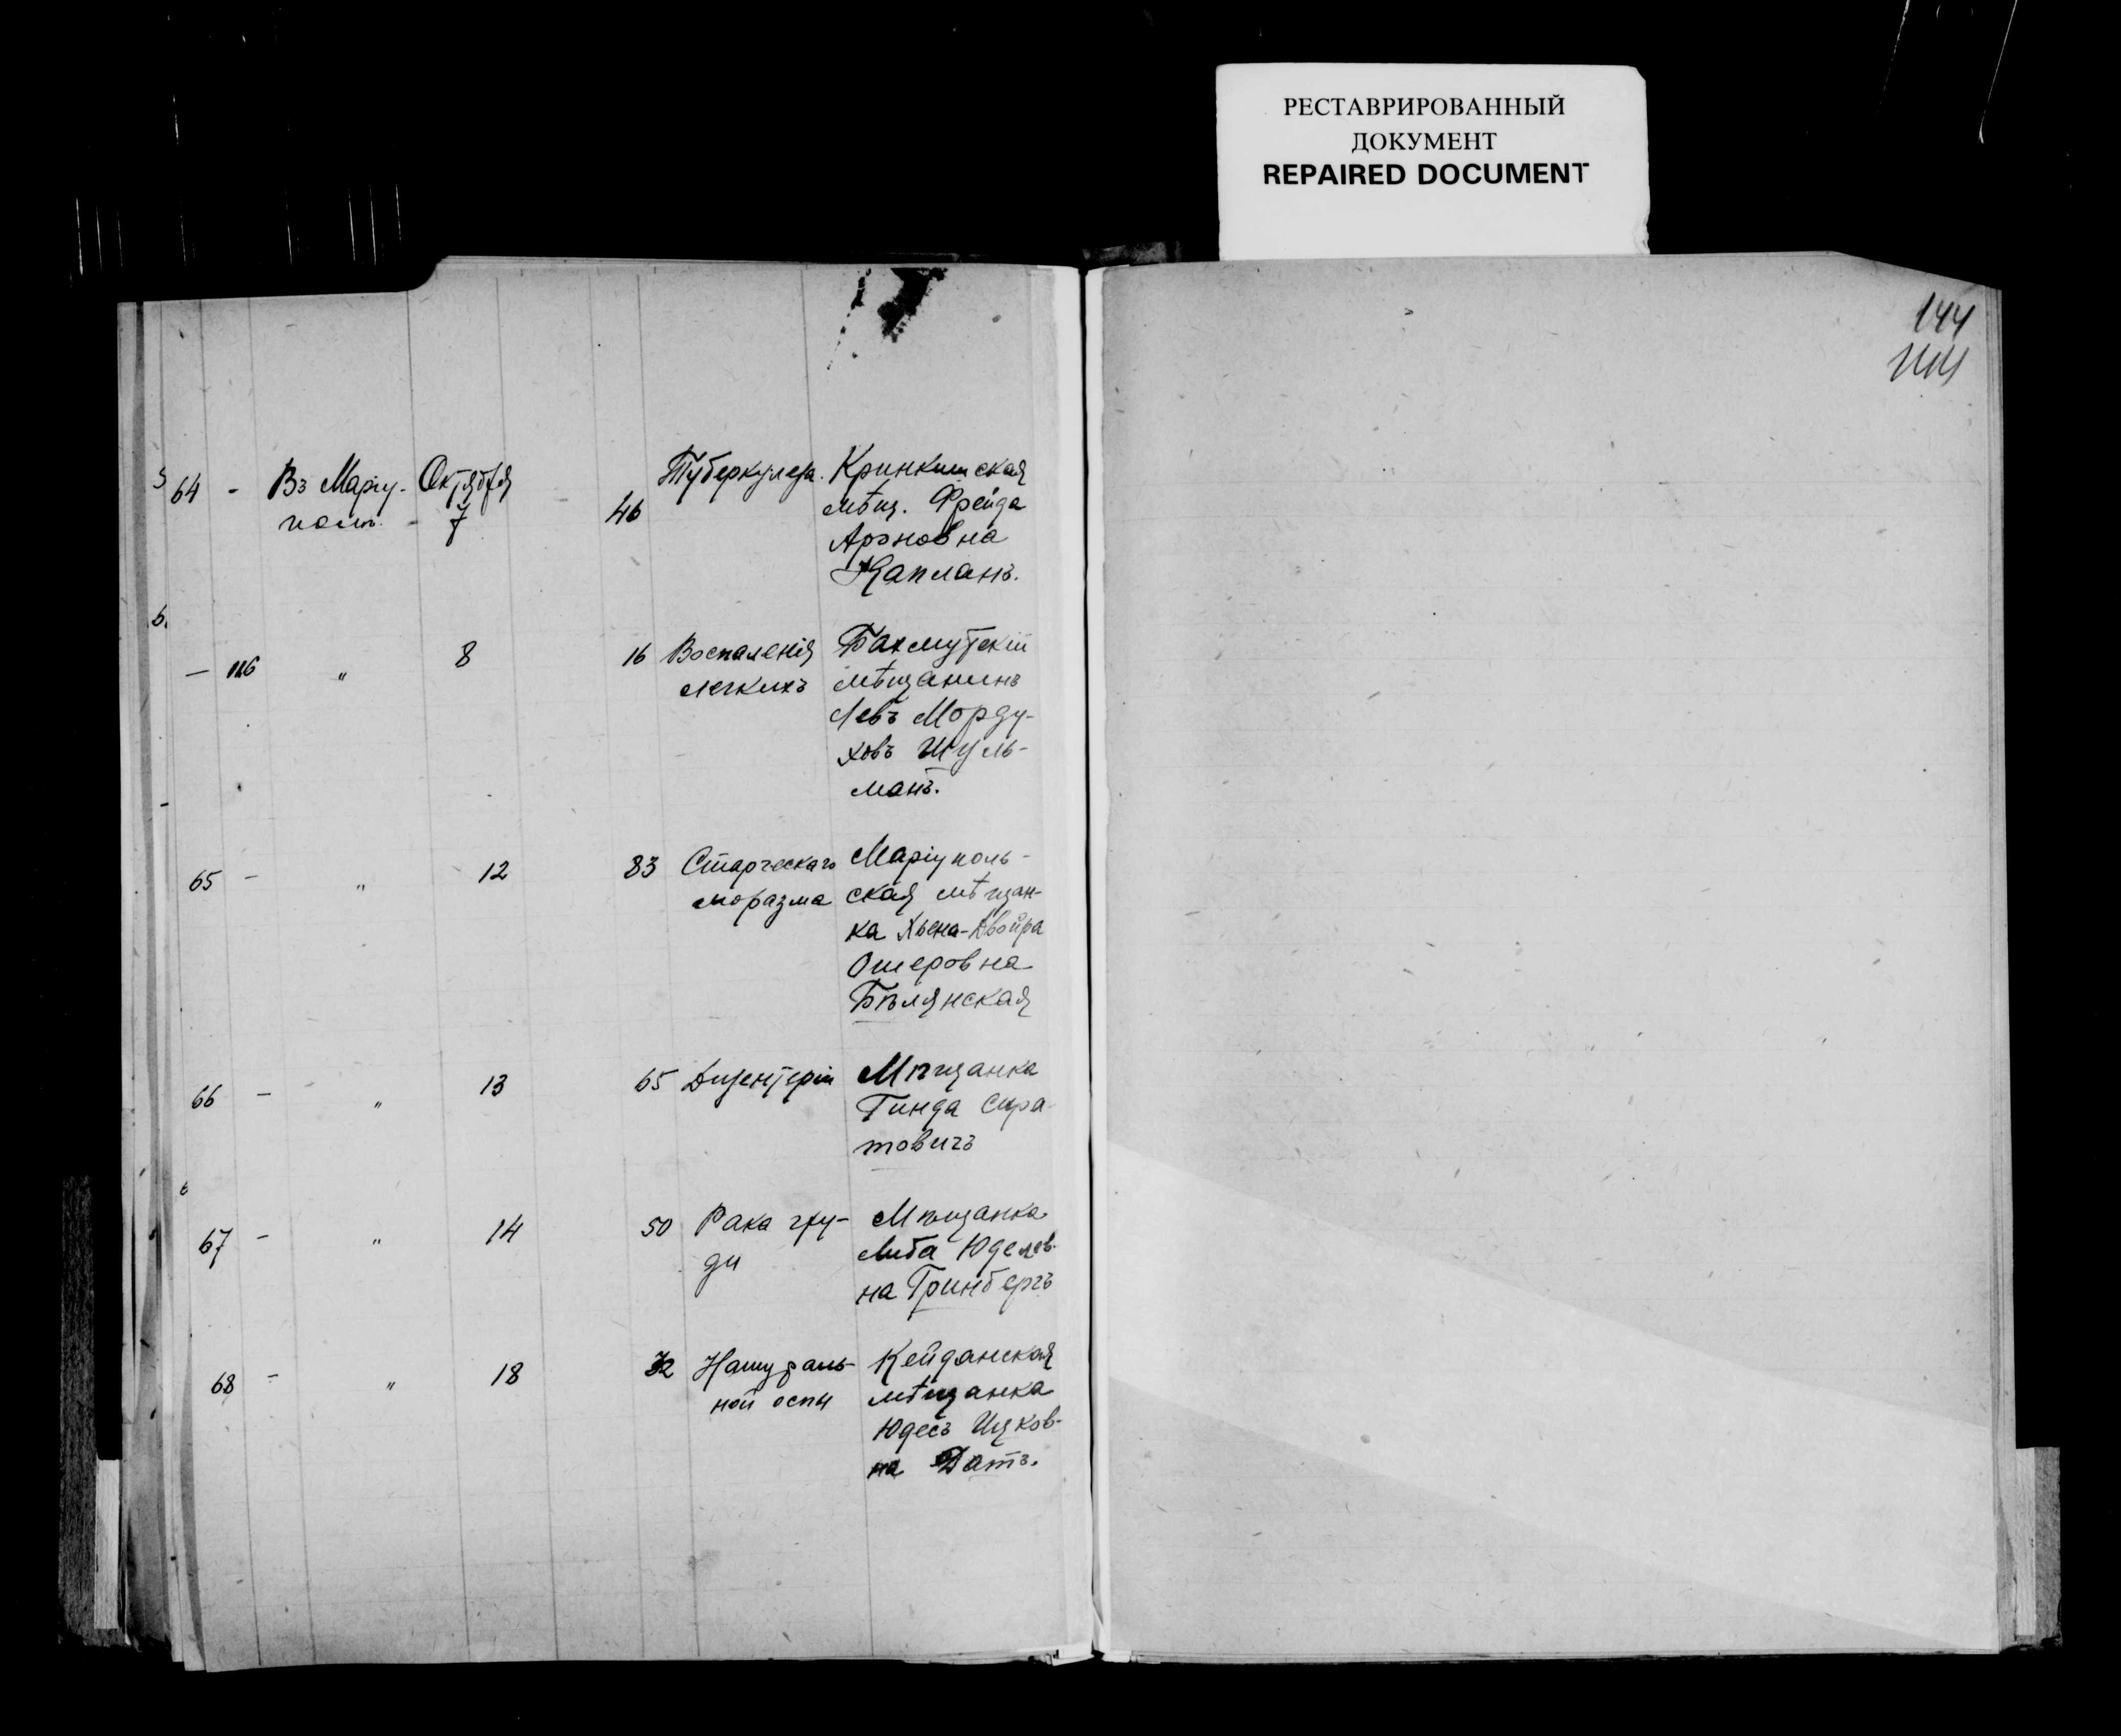 РЕСТАВРИРОВАННЫЙ
ДОКУМЕНТ
REPAIRED DOCUMENT
144
144
64 - Въ Маріу- Октября Туберкулеза. Кринкинская
полѣ. - 7 46 мѣщ. Фрейда
Ароновна
Капланъ.
— 116 " 8 16 Воспаленія Бахмутскій
легкихъ мѣщанинъ
Левъ Морду-
ховъ Шуль-
манъ.
65 - " 12 83 Старческаго Маріуполь-
маразма ская мѣщан-
ка Хьена-Двойра
Ошеровна
Бѣлянская
66 - " 13 65 Дизентеріи Мѣщанка
Гинда Сира-
товичъ
67 - " 14 50 Рака гру- Мѣщанка
ди Либа Юделев-
на Гринбергъ
68 - " 18 32 Натураль- Кейданская
ной оспы мѣщанка
Юдесъ Ицков-
на Датъ.